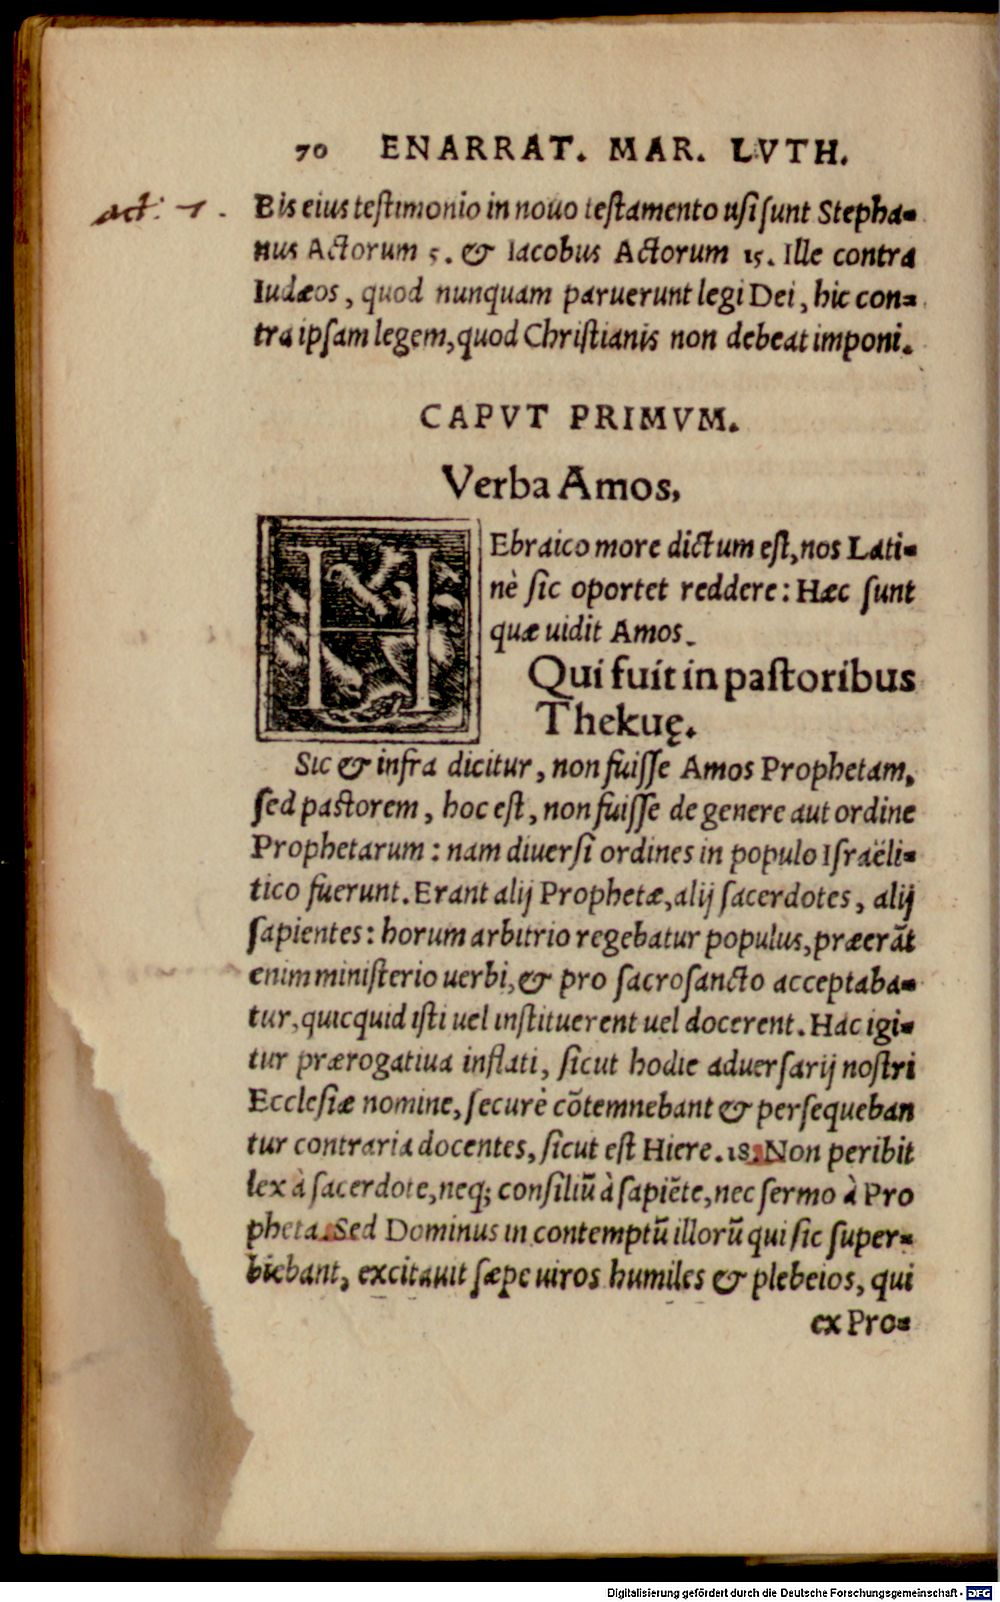 70 ENARRAT. MAR. LVTH.
act. 7.
Bis eius testimonio in nouo testamento usi sunt Stepha=
nus Actorum 5. & Iacobus Actorum 15. Ille contra
Iudæos, quod nunquam paruerunt legi Dei, hic con=
tra ipsam legem, quod Christianis non debeat imponi.
CAPVT PRIMVM.
Verba Amos,
HEbraico more dictum est, nos Lati=
nè sic oportet reddere: Hæc sunt
quæ uidit Amos.
Qui fuit in pastoribus
Thekuę.
Sic & infra dicitur, non fuisse Amos Prophetam,
sed pastorem, hoc est, non fuisse de genere aut ordine
Prophetarum: nam diuersi ordines in populo Israëli=
tico fuerunt. Erant alij Prophetæ, alij sacerdotes, alij
sapientes: horum arbitrio regebatur populus, præerāt
enim ministerio uerbi, & pro sacrosancto acceptaba=
tur, quicquid isti uel instituerent uel docerent. Hac igi=
tur prærogatiua inflati, sicut hodie aduersarij nostri
Ecclesiæ nomine, securè cōtemnebant & persequeban
tur contraria docentes, sicut est Hiere. 18. Non peribit
lex à sacerdote, neq; consiliū à sapiēte, nec sermo à Pro
pheta. Sed Dominus in contemptū illorū qui sic super=
biebant, excitauit sæpe uiros humiles & plebeios, qui
ex Pro=
Digitalisierung gefördert durch die Deutsche Forschungsgemeinschaft - DFG